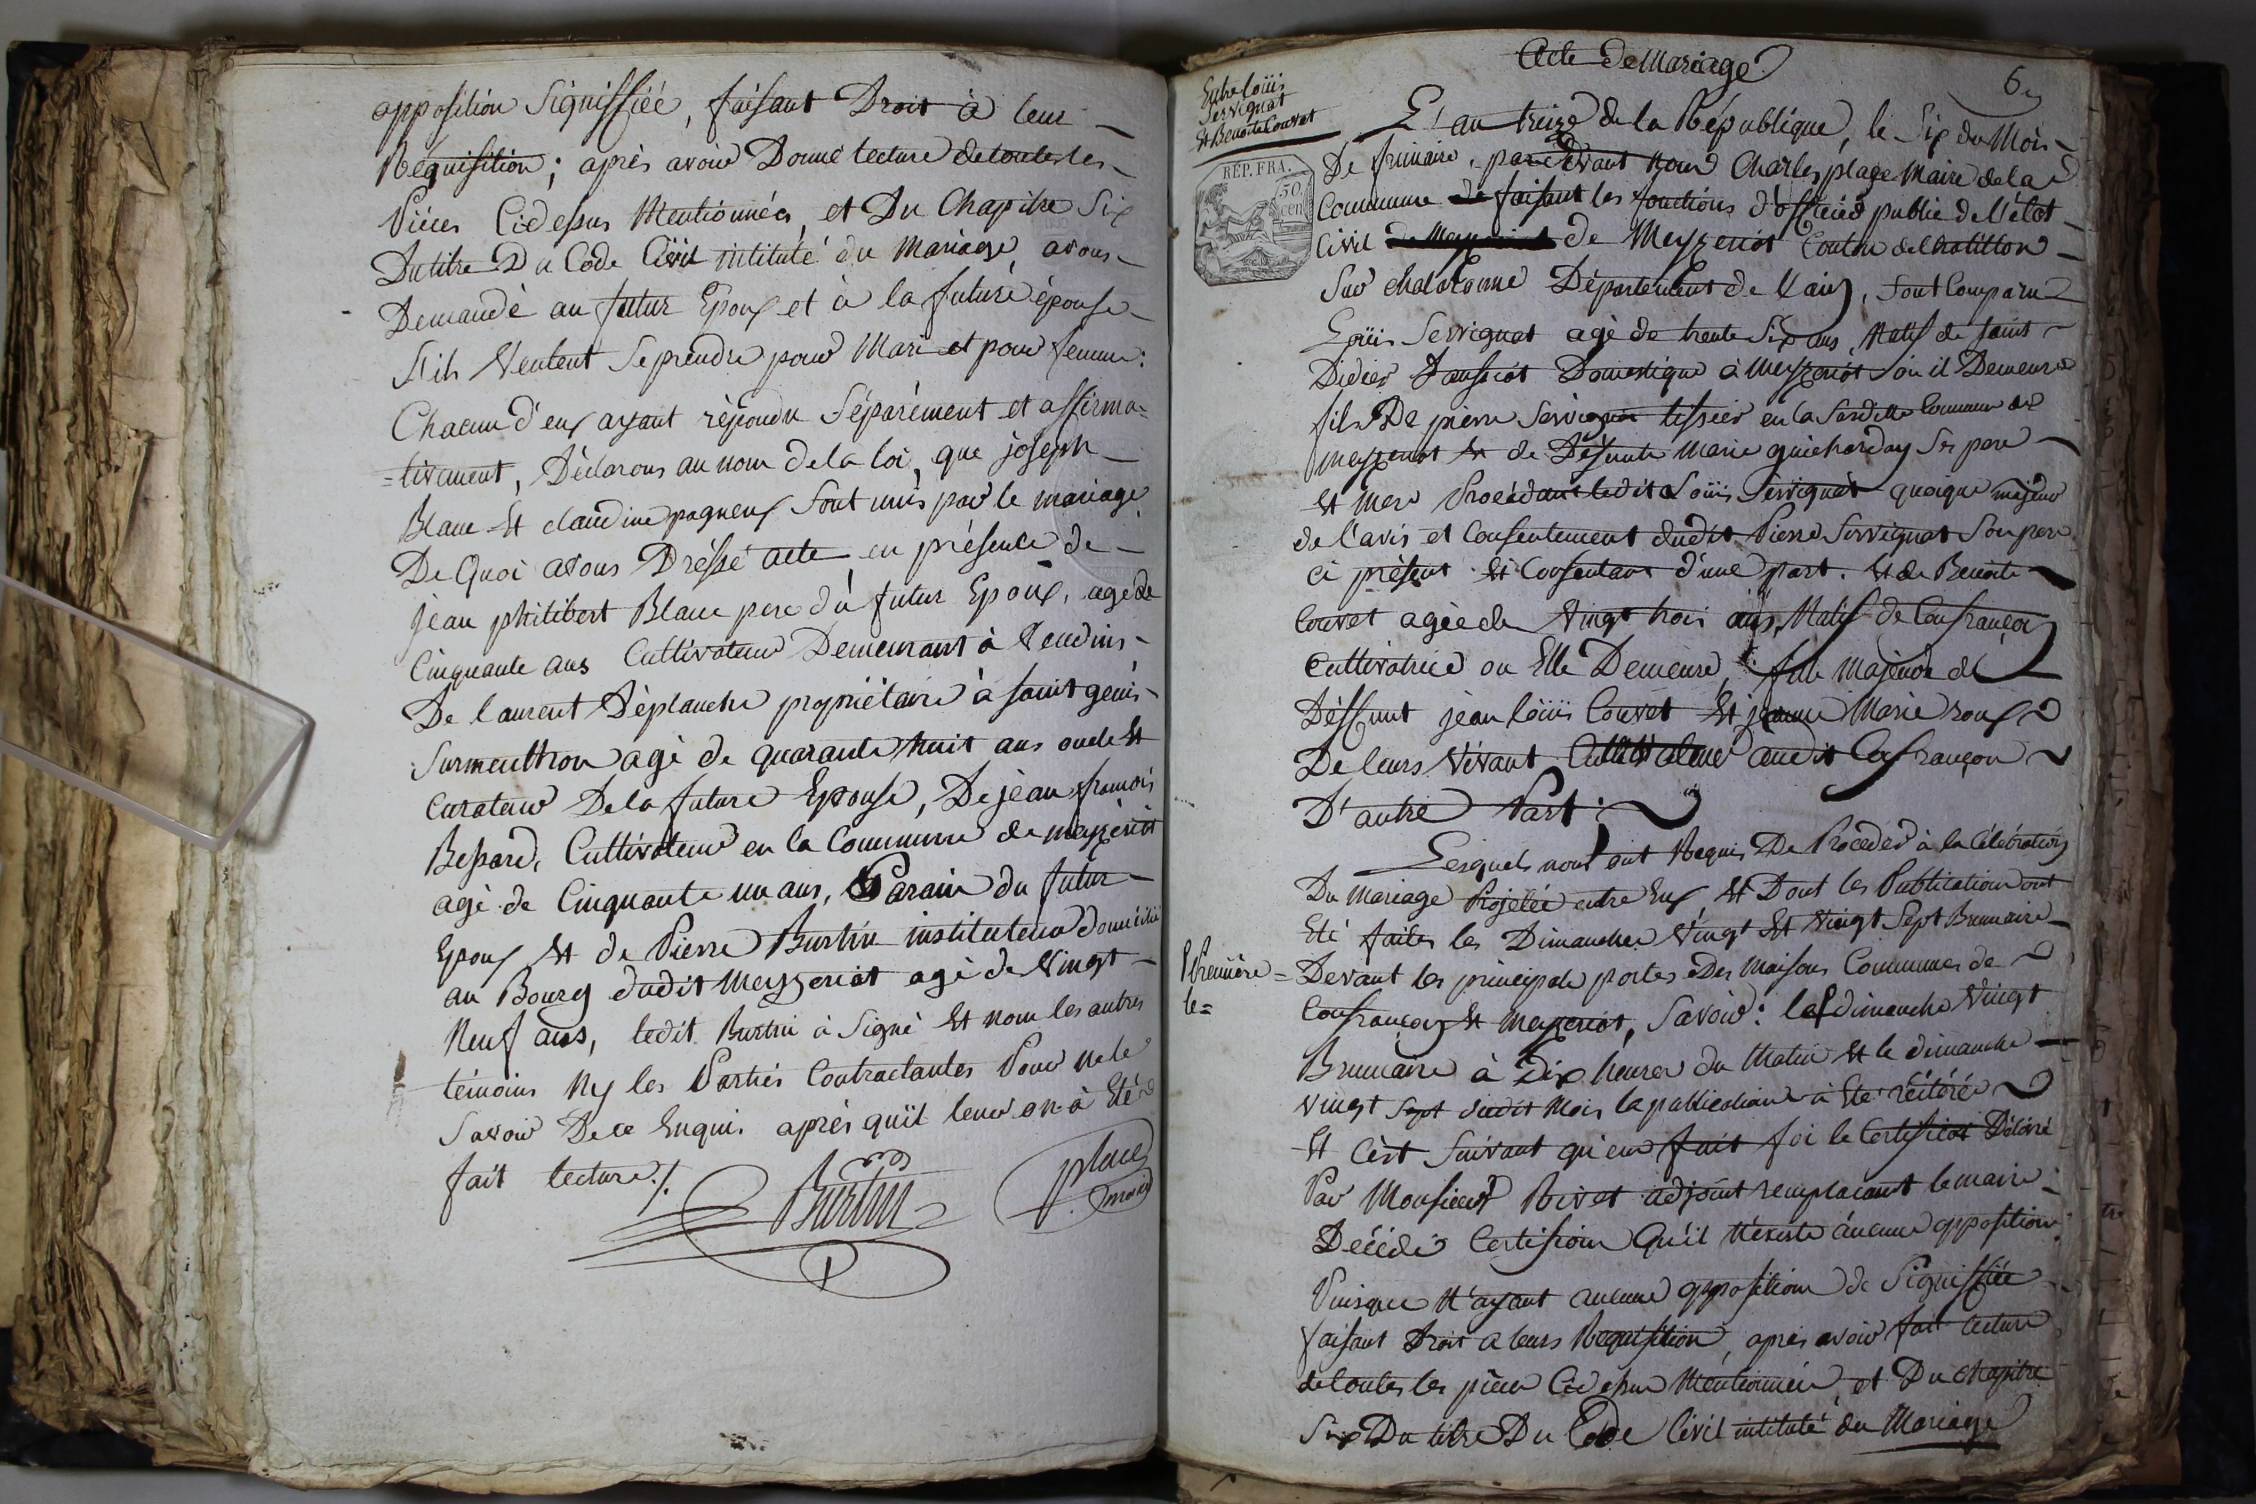 opposition Signiffiéé, faisant Droit à leur
Réquisition; après avoir Donné lecture de toutes les
Piéces Cidessus Mentionnées, et Du Chapitre Six
Dutitre Du Code Civil intitulé du Mariage, avons
Demandé au futur Epoux et à la future épouse
S'ils Veulent se prendre pour Mari et pour femme:
Chacun d'eux ayant répondu Séparément et affirma=
=tivement, Déclarons au nom de la loi, que joseph
Blanc Et claudine pagneux Sont unis par le mariage
De Quoi avons Dréssé acte en présence de
jean philibert Blanc pere du futur Epoux, agé de
Cinquante ans Cultivateur Demeurant à
De laurent Déplanche propriétaire à saint genis
Surmenthon agé de quarante huit ans oncle Et
Curateur De la future Epouse, De jean françois
Bessard, Cultivateur en la Commune de mezériat
agé de Cinquante un ans, Parain du futur
Epoux Et de Pierre Burtin instituteur domicilié
au Bourg dudit Mezzeriat agé de Vingt
Neuf ans, ledit Burtin à Signé Et nom les autres
témoins Ny les Parties Contractantes Pour ne le
Savoir De ce Enquis après qu'il leur en à Eté
fait lecture ./.
Burtin
place
maire
Acte de Mariage
6
Entre loüis
Servignat
Et Benoite Couvet
RÉP. FRA.
50
cen
L'an treize de la République, le Six du Mois
De frimaire, pardevant Nous Charles place Maire de la
Commune faisant les fonctions d'officier public de l'état
Civil de Meyzeriat Canton de Chatillon
Sur chalaronne Département de l'ain, sont Comparu
Loüis Servignat agé de trente Six ans, Natif de saint
Didier d'aussiat Domestique à Meyzeriat où il Demeure
fils De pierre Servignat tissier en la Susditte Commune de
Meyzeriat Et de Défunte Marie guicharday Ses pere
Et Mere Procédant ledit Loüis Servignat quoique majeur
de l'avis et Consentement dudit Pierre Servignat Son pere
ci présent Et Consentant d'une part. Et de Benoite
Couvet agée de Vingt trois ans, Natif de Confrançon
Cultivatrice ou Elle Demeure, fille Majeure de
Déffunt jean loüis Couvet Et jeanne Marie roux
De leurs Vivant Cultivateur audit Confrançon
D'autre Part;
Lesquels nous ont Requis De Proceder à la Célébration
Du Mariage Projetée entre Eux, Et Dont les Publication ont
Eté faites les Dimanches Vingt Et Vingt Sept Brumaire
Premiere =
le =
Devant les principale portes Des Maisons Communes de
Confrançon Et Mezeriat, Savoir: le dimanche Vingt
Brumaire à Dix heures du Matin Et le dimanche
Vingt Sept dudit Mois la publication à Eté réitérée
Et C'est Suivant qu'en fait foi le Certificat Délivré
Par Monsieur Rivet adjoint remplacant le maire
Décédé Certifions Qu'il N'éxiste aucune opposition
Puisque N'ayant aucune opposition de Signiffiée
faisant Droit a leurs Requisition, après avoir fait lecture
de toutes les pièces Cidessus Mentionnées et Du Chapitre
Six Du titre Du Code Civil intitulé du Mariage